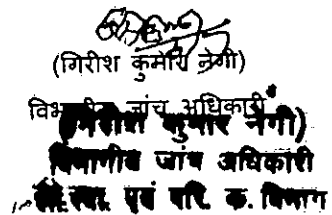 (गिरीश कुमार नेगी)
विभागीय जांच अधिकारी
(गिरीश कुमार नेगी)
विभागीय जांच अधिकारी
स्वा. एवं परि. क. विभाग